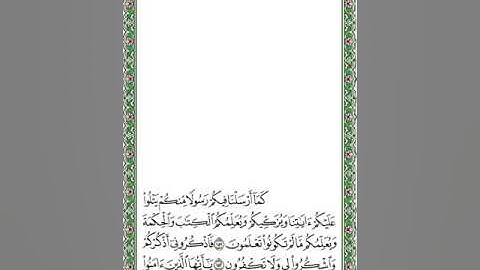 كَمَآ أَرْسَلْنَا فِيكُمْ رَسُولًا مِّنكُمْ يَتْلُوا۟
عَلَيْكُمْ ءَايَٰتِنَا وَيُزَكِّيكُمْ وَيُعَلِّمُكُمُ ٱلْكِتَٰبَ وَٱلْحِكْمَةَ
وَيُعَلِّمُكُم مَّا لَمْ تَكُونُوا۟ تَعْلَمُونَ ١٥١ فَٱذْكُرُونِىٓ أَذْكُرْكُمْ
وَٱشْكُرُوا۟ لِى وَلَا تَكْفُرُونِ ١٥٢ يَٰٓأَيُّهَا ٱلَّذِينَ ءَامَنُوا۟